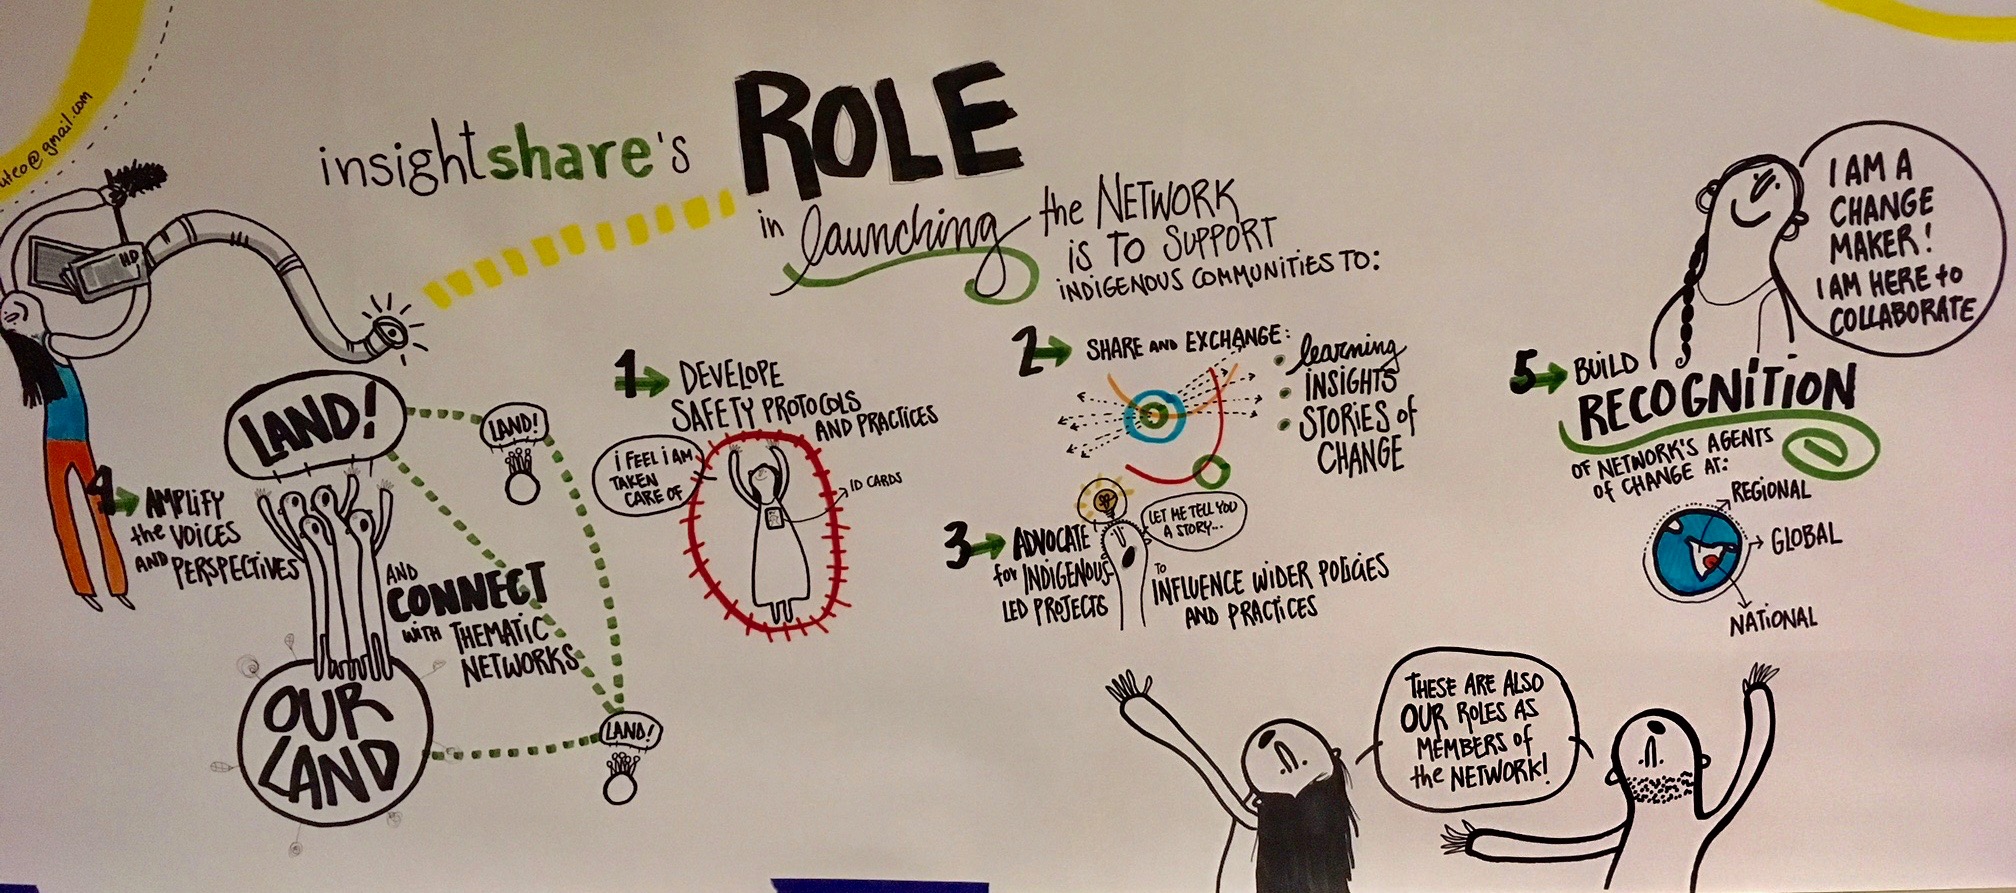 insightshare's ROLE
in launching the NETWORK
is TO SUPPORT
INDIGENOUS COMMUNITIES TO:
@gmail.com
HD
1 DEVELOPE
SAFETY PROTOCOLS
AND PRACTICES
i FEEL i AM
TAKEN
CARE OF
ID CARDS
2 SHARE AND EXCHANGE:
• learning
• INSIGHTS
• STORIES of
CHANGE
3 ADVOCATE
for INDIGENOUS
LED PROJECTS
LET ME TELL YOU
A STORY...
TO
INFLUENCE WIDER POLICIES
AND PRACTICES
4 AMPLIFY
the VOICES
AND PERSPECTIVES
AND
CONNECT
WITH THEMATIC
NETWORKS
LAND!
LAND!
LAND!
OUR
LAND
5 BUILD
RECOGNITION
OF NETWORK'S AGENTS
of CHANGE AT:
REGIONAL
GLOBAL
NATIONAL
I AM A
CHANGE
MAKER!
I AM HERE to
COLLABORATE
THESE ARE ALSO
OUR ROLES AS
MEMBERS of
the NETWORK!